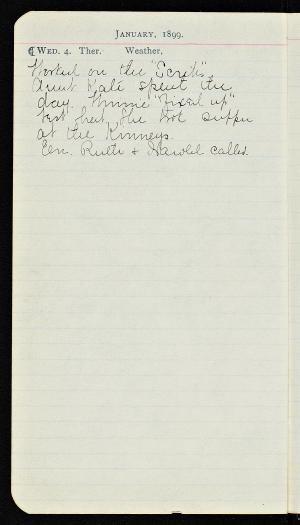 JANUARY, 1899.
WED. 4. Ther. Weather,
Worked on the "Scrits".
Aunt Kate spent the
day. Minnie "fixed up"
her hat. She got supper
at the Kinneys.
Ruth & Harold called.